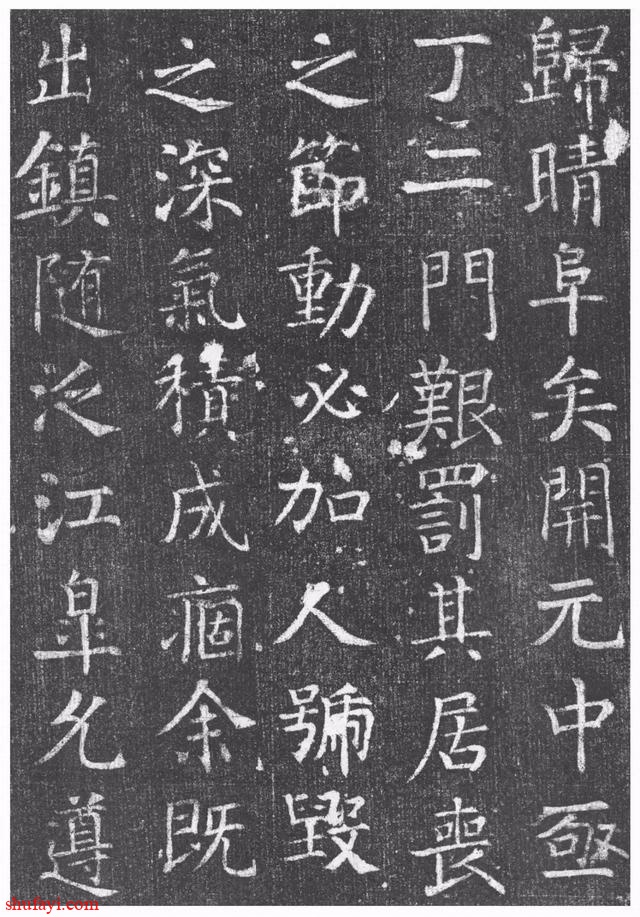 歸晴阜矣開元中亟
丁二門艱罰其居喪
之節動必加人號毀
之深氣積成痼余既
出鎮随泛江皐允遵
shufayi.com